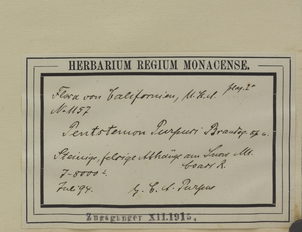 HERBARIUM REGIUM MONACENSE.
Flora von Californien, U.S.A.
No. 1157
Pentstemon Purpusi Brandg.
Steinige felsige Abhänge am Snow Mt.
Coast R.
7-8000
Juli 94. C. A. Purpus
Zugegangen XII. 1915.